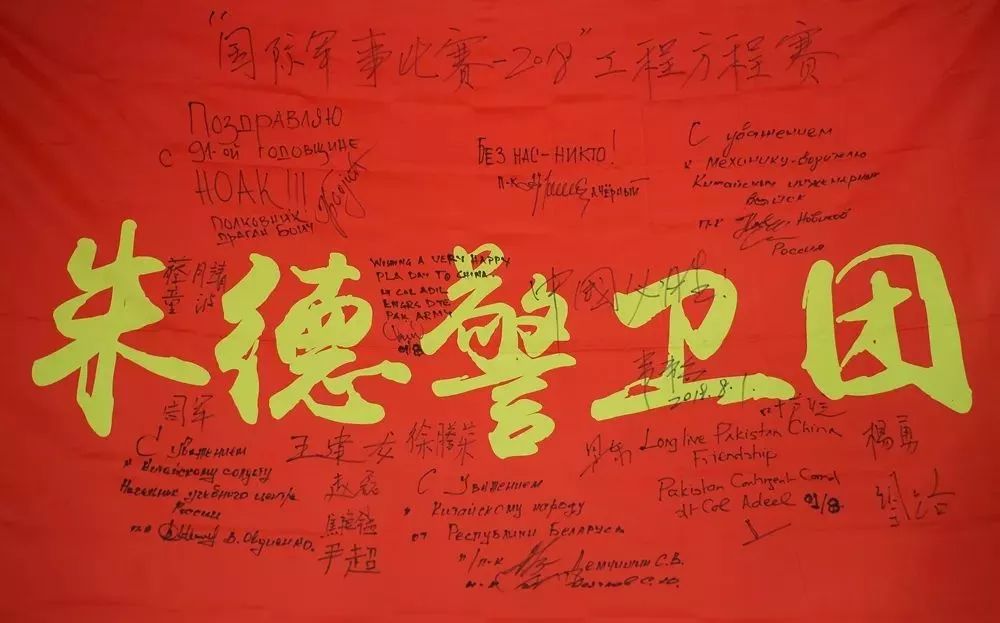 "国际军事比赛-2018"工程方程赛
Поздравляю
с 91-ой годовщине
НОАК!!!
полковник
Драган Боич
БЕЗ НАС-НИКТО!
п-к
АЧЁРНЫЙ
С уважением
к механику-водителю
Китайских инженерных
войск
п-к
Новиков
Россия
蔡月靖
童
WISHING A VERY HAPPY
PLA DAY TO CHINA
LT COL ADIL
ENGRS DTE
PAK ARMY
01/8
中国必胜!
2018.8.1.
朱德警卫团
闫军
С уважением
к Китайскому солдату
Начальник учебного центра
России
п-к
В. Овциенко.
王建友
徐腾荣
赵磊
尹超
С уважением
к Китайскому народу
от Республики Беларусь
п/п-к
Демчишин С.В.
Long live Pakistan China
Friendship
Pakistan Contingent Comd
Lt Col Adeel 01/8
楊勇